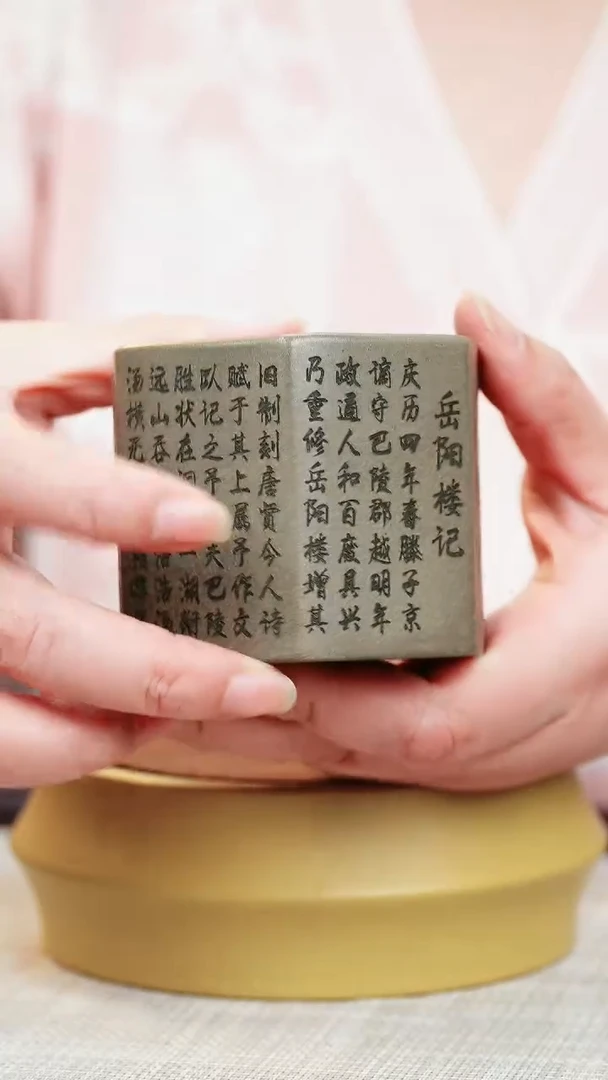 岳阳楼记
庆历四年春滕子京
谪守巴陵郡越明年
政通人和百废具兴
乃重修岳阳楼增其
旧制刻唐贤今人诗
赋于其上属予作文
以记之予夫巴陵
胜状在洞一湖衔
远山吞浩汤
汤横无